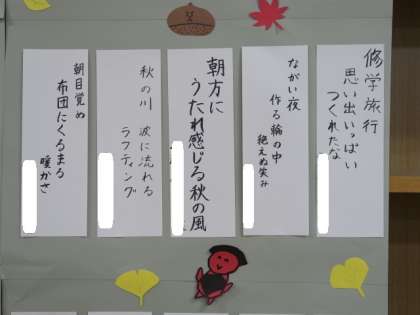 修学旅行
思い出いっぱい
つくれたな
ながい夜
作る輪の中
絶えぬ笑み
朝方に
うたれ感じる秋の風
秋の川
波に流れる
ラフティング
朝目覚め
布団にくるまる
暖かさ